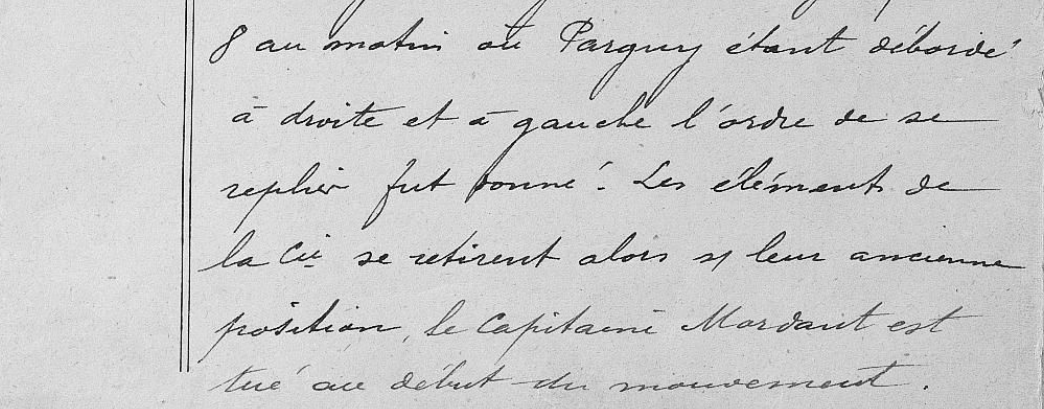 8 au matin où Pargny étant débordé
à droite et à gauche l'ordre de se
replier fut donné. Les éléments de
la Cie se retirent alors s/ leur ancienne
position, le Capitaine Mordant est
tué au début du mouvement.